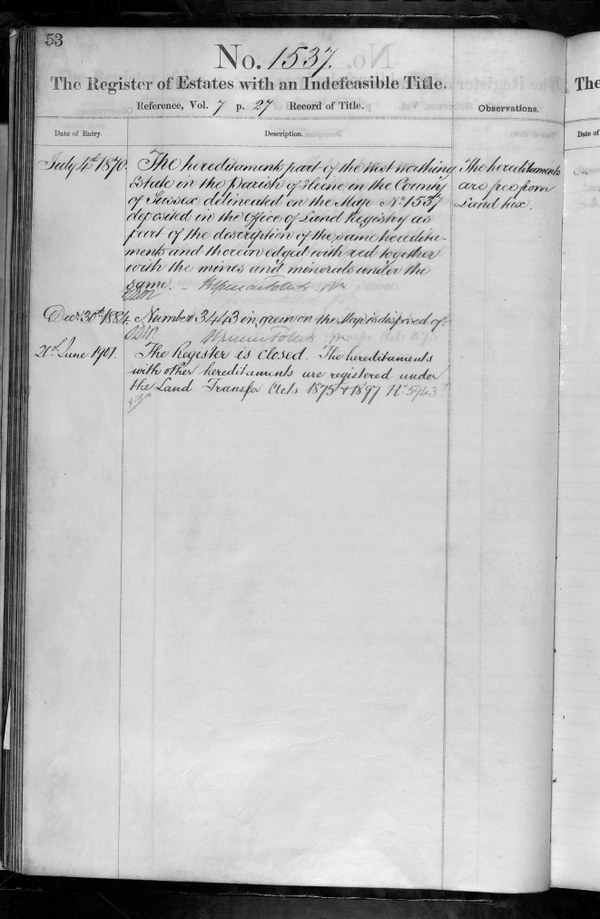 53
No. 1537.
The Register of Estates with an Indefeasible Title.
Reference, Vol. 7 p. 27 Record of Title.
Observations.
Date of Entry
Description.
July 4th 1870.
The hereditaments part of the West Worthing
Estate in the Parish of Heene in the County
of Sussex delineated on the Map No 1537
deposited in the Office of Land Registry as
part of the description of the same heredita-
ments and thereon edged with red together
with the mines and minerals under the
same.
The hereditaments
are free from
Land tax.
Decr 30th 1884.
Number 3443 in green on the Map is disposed of
20th June 1901.
The Register is closed. The hereditaments
with other hereditaments are registered under
the Land Transfer Acts 1875 & 1897 No 5963
The
Date of